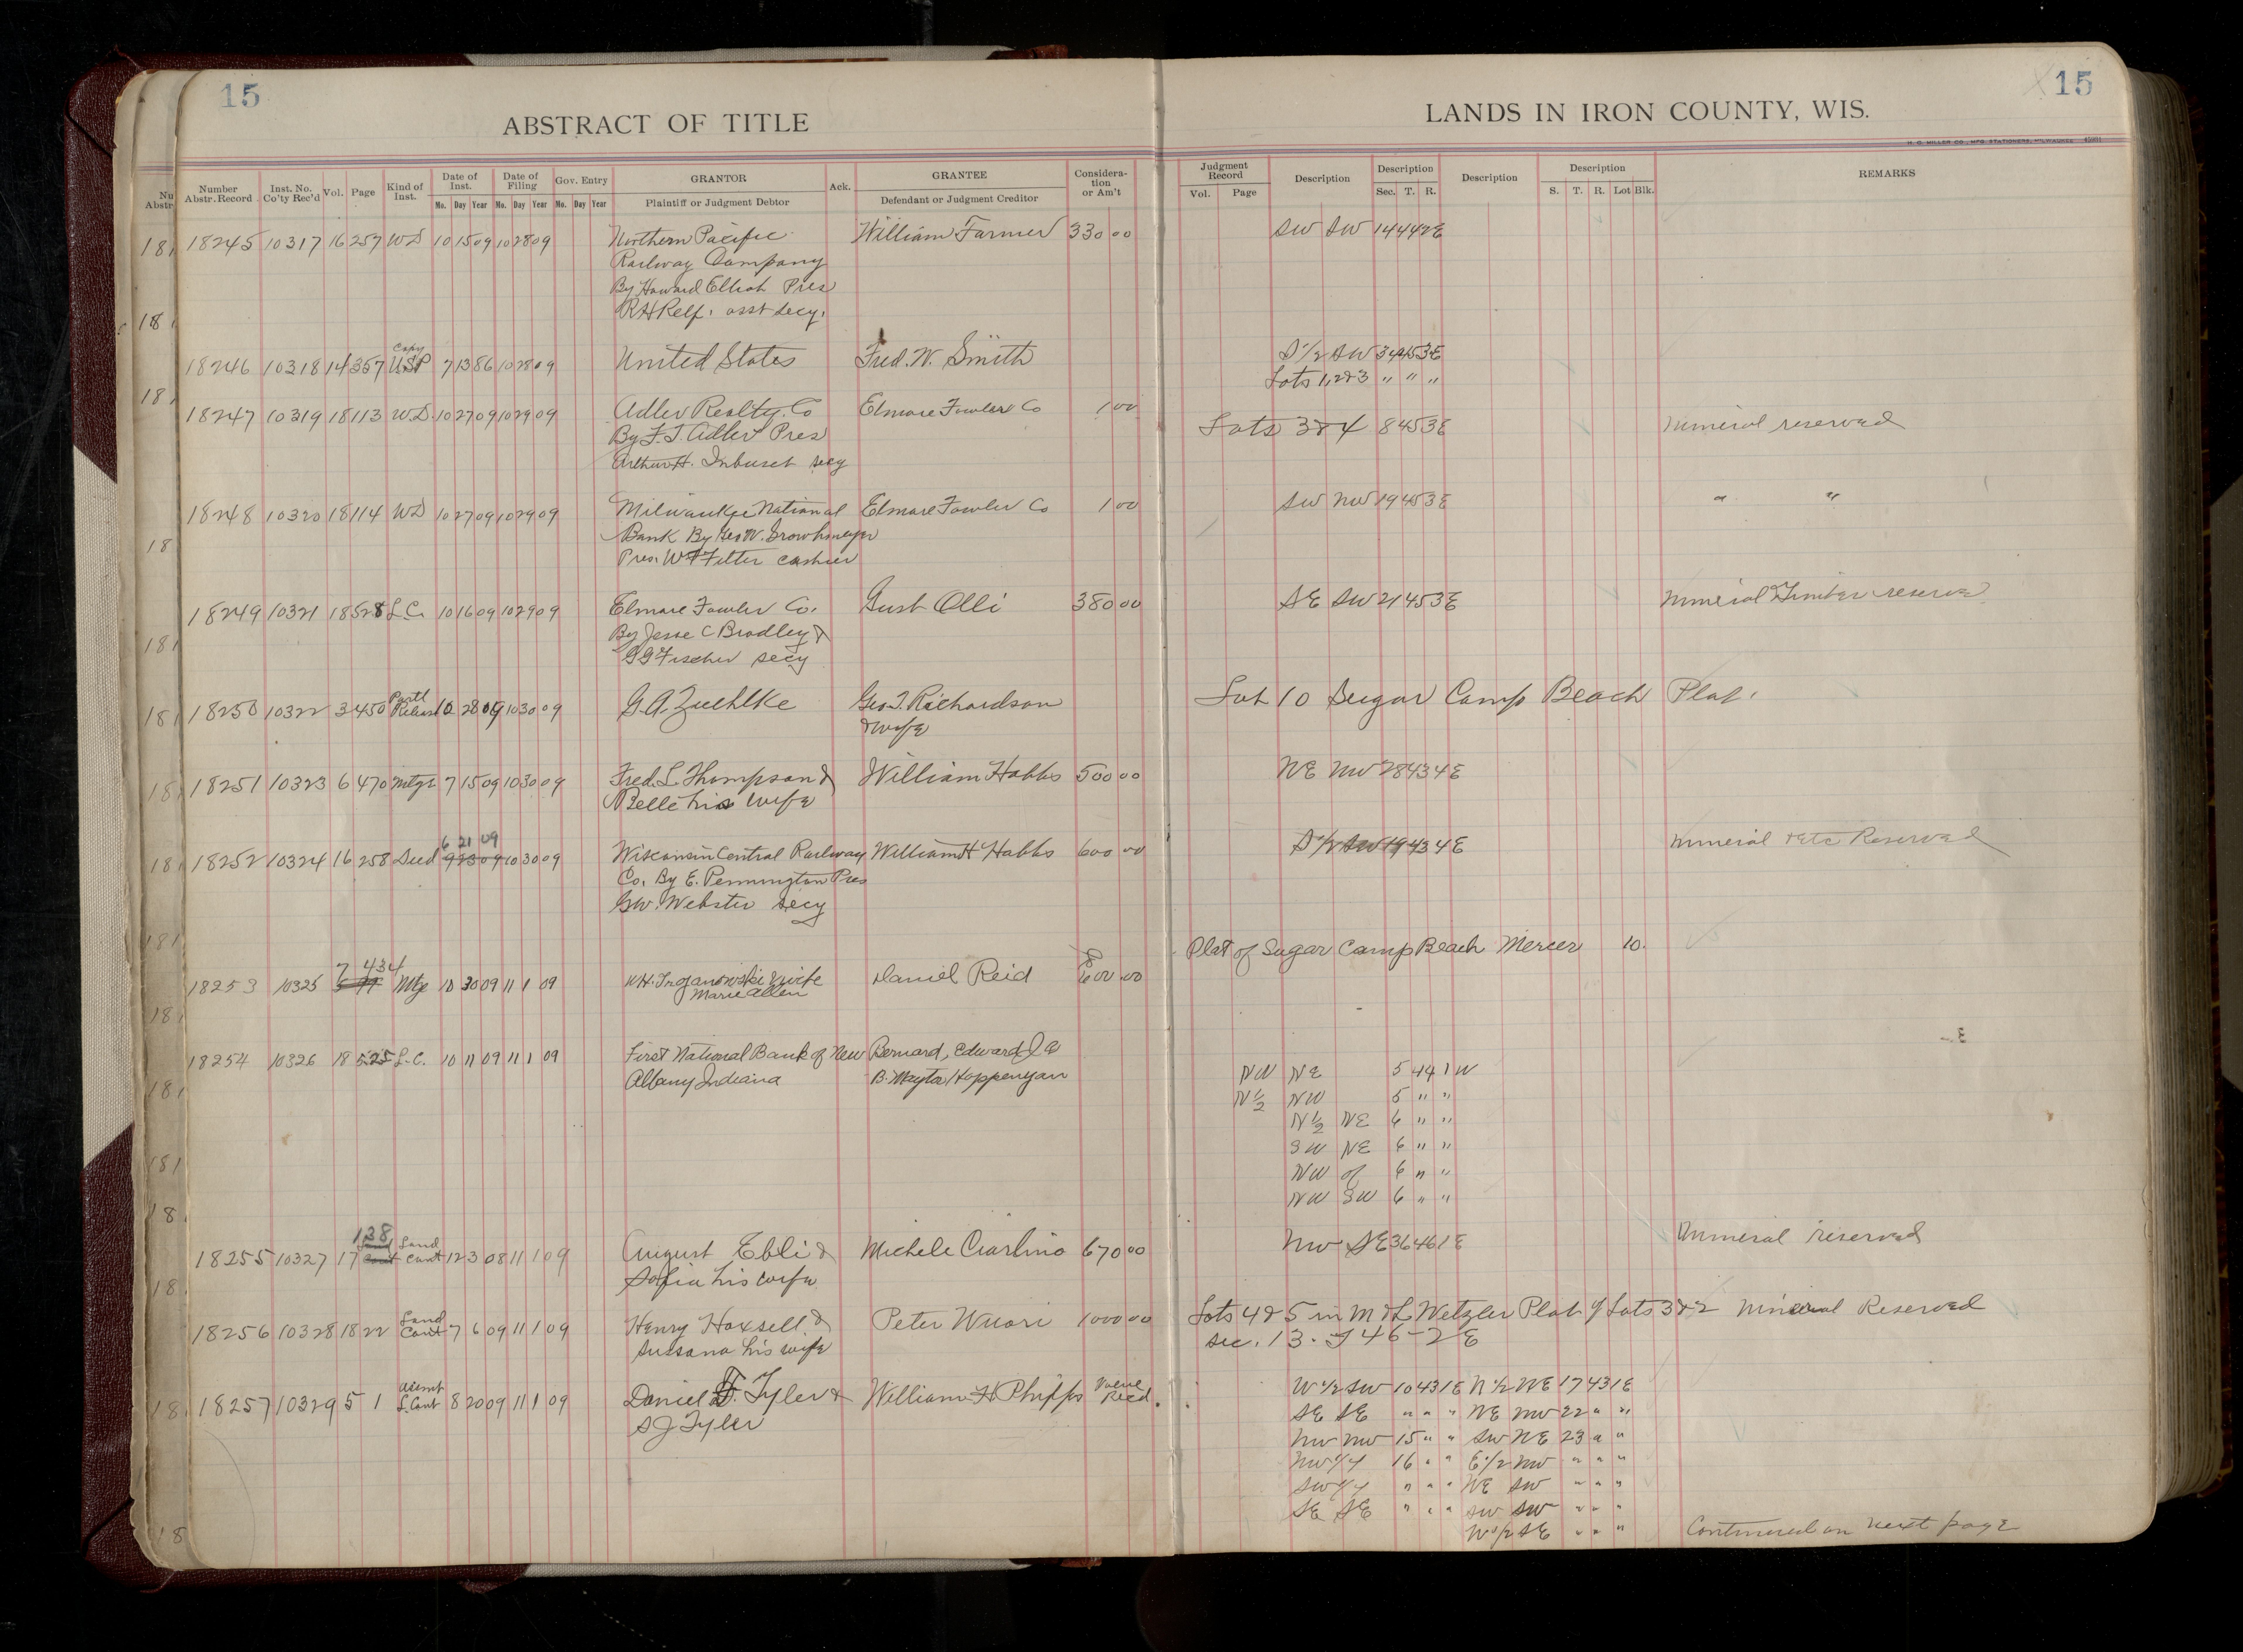 15
15
ABSTRACT OF TITLE
LANDS IN IRON COUNTY, WIS.
H. G. MILLER CO., MFG. STATIONERS, MILWAUKEE
Number Abstr. Record Inst. No. Co'ty Rec'd Vol. Page Kind of Inst. Date of Inst. Date of Filing Gov. Entry GRANTOR Ack. GRANTEE Considera-tion or Am't Judgment Record Description Description Description Description REMARKS
Mo. Day Year Mo. Day Year Mo. Day Year Plaintiff or Judgment Debtor Defendant or Judgment Creditor Vol. Page Sec. T. R. S. T. R. Lot Blk.
18245 10317 16 257 WD 10 15 09 10 28 09 Northern Pacific William Farmer 330 00 SW SW 14 44 2E
Railway Company
By Howard Elliott Pres
RH Relf. asst secy.
Copy
18246 10318 14 357 USP 7 13 86 10 28 09 United States Fred. W. Smith S 1/2 SW 34 45 3E
Lots 1,2&3 " " "
18247 10319 18 113 WD 10 27 09 10 29 09 Adler Realty Co Elmore Fowler Co 1 00 Lots 3&4 8 45 3E mineral reserved
By F. J. Adler Pres
Arthur H. Inbusch secy
18248 10320 18 114 WD 10 27 09 10 29 09 Milwaukee National Elmore Fowler Co 1 00 SW NW 19 45 3E " "
Bank By Geo W. Strohmeyer
Pres. W F Filter cashier
18249 10321 18 528 L.C. 10 16 09 10 29 09 Elmore Fowler Co. Gust Olli 380 00 SE SW 21 45 3E mineral & Timber reserve
By Jesse C Bradley &
GG Fischer secy
Partl
18250 10322 3 450 Release 10 28 09 10 30 09 G. A. Zuehlke Geo. T. Richardson Lot 10 Sugar Camp Beach Plat.
& wife
18251 10323 6 470 mtge 7 15 09 10 30 09 Fred. L. Thompson & William Hobbs 500 00 NE NW 28 43 4E
Belle his wife
6 21 09
18252 10324 16 258 Deed 9 23 09 10 30 09 Wisconsin Central Railway William H Hobbs 600 00 S 1/2 SW 19 43 4E mineral &Etc Reserved
Co. By E. Pennington Pres
GW. Webster secy
Plat of Sugar Camp Beach Mercer 10.
7 434
18253 10325 Mtge 10 30 09 11 1 09 W.H. Trojanowski & wife Daniel Reid 600 00
Marie Allen
18254 10326 18 525 L.C. 10 11 09 11 1 09 First National Bank of New Bernard, Edward J &
Albany Indiana B. Mayta Hoppenyan
NW NE 5 44 1W
N 1/2 NW 5 " "
N 1/2 NE 6 " "
SW NE 6 " "
NW of 6 " "
NW SW 6 " "
138 Land
18255 10327 17 Cont 12 3 08 11 1 09 August Ebli & Michele Ciarlino 670 00 NW SE 36 46 1E mineral reserved
Sofia his wife
Land
18256 10328 18 22 Cont 7 6 09 11 1 09 Henry Haxsell & Peter Wuori 1000 00 Lots 4&5 in M & L Wetzler Plat of Lots 3&2 mineral Reserved
Susana his wife sec. 13. T 46-2E
Asemt
18257 10329 5 1 L. Cont 8 20 09 11 1 09 Daniel F. Tyler & William H Phipps Value Recd. W 1/2 SW 10 43 1E N 1/2 NE 17 43 1E
S J Tyler SE SE " " " NE NW 22 " "
NW NW 15 " " SW NE 23 " "
NW 1/4 16 " " E 1/2 NW " " "
SW 1/4 " " " NE SW " " "
SE SE " " " SW SW " " "
W 1/2 SE " " " Continued on next page